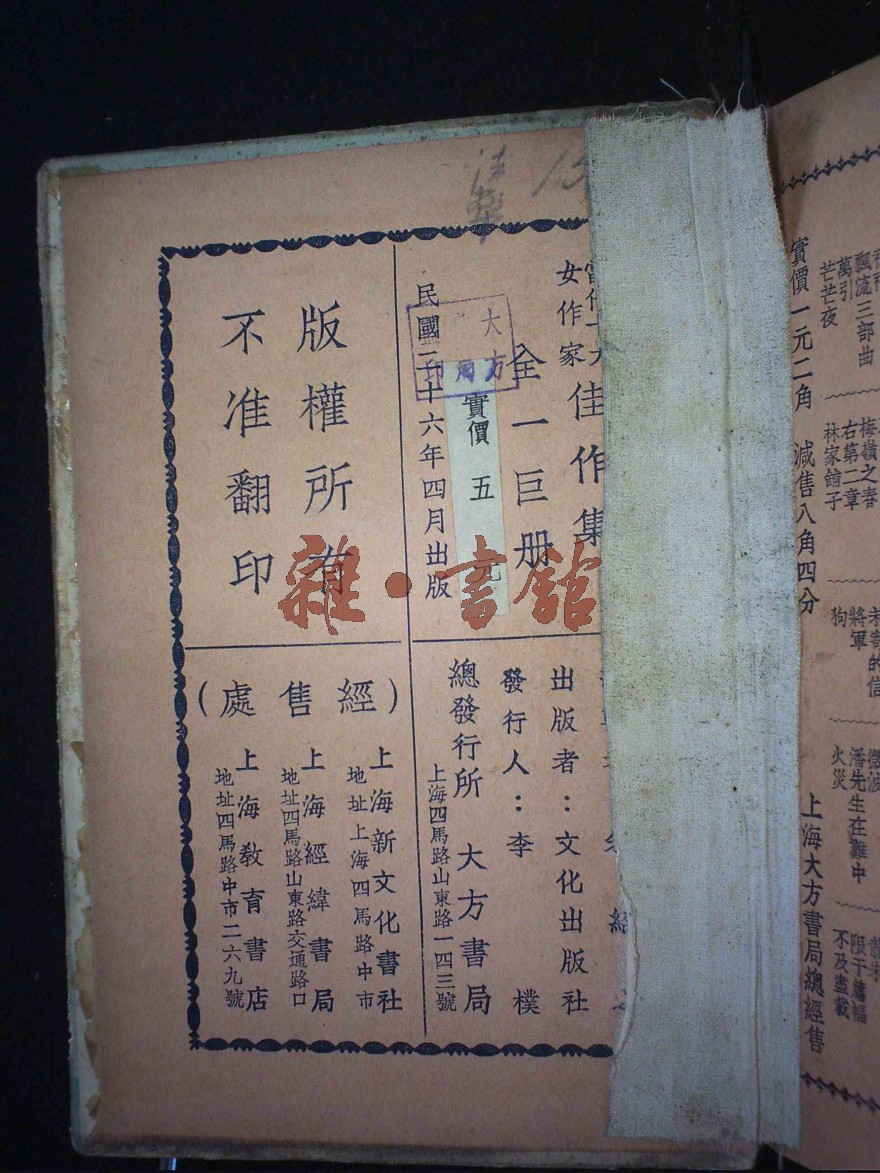 實價一元二角　減售八角四分　上海大方書局總經售
飄流三部曲
萬引
芒芒夜
梅嶺之春
右第二章
林家鋪子
未寄的信
將軍
狗
微波
潘先生在難中
火災
限于篇幅
不及盡載
女作家
佳作集
全一巨册
實價　五　元
民國二十六年四月出版
大方
出版者：文化出版社
發行人：李　樸
總發行所　大方書局
上海四馬路山東路一四三號
版權所有
不准翻印
（經售處）
上海新文化書社
地址上海四馬路中市
上海經緯書局
地址四馬路山東路交通路口
上海教育書店
地址四馬路中市二六九號
雜·書館